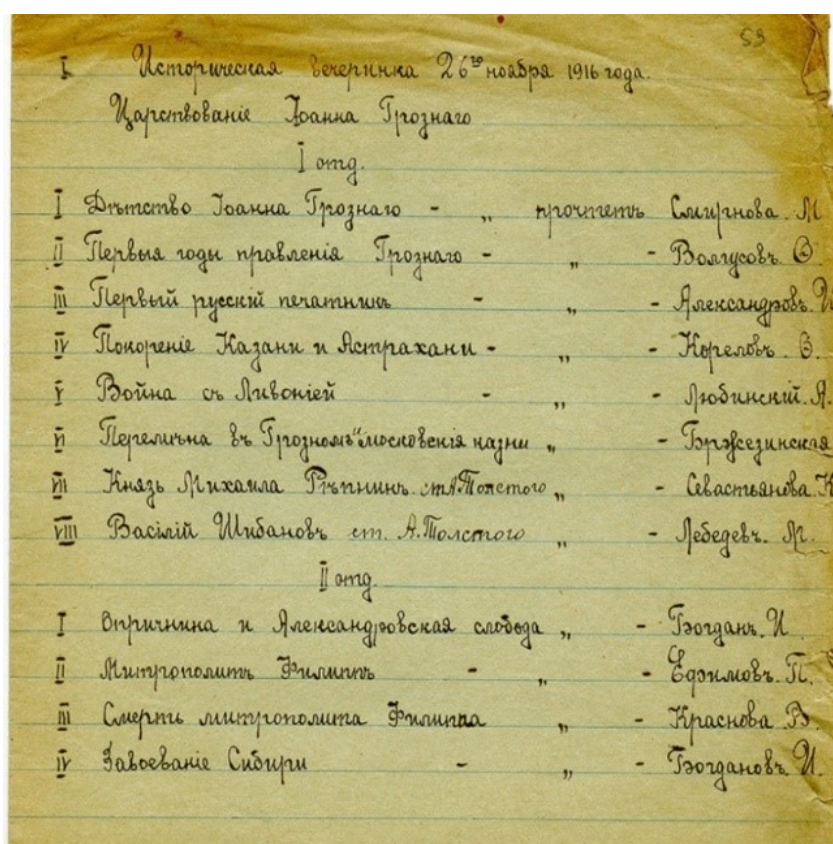 53
I Историческая вечеринка 26го ноября 1916 года.
Царствованіе Іоанна Грознаго
I отд.
I Дѣтство Іоанна Грознаго - „ прочтетъ Смирнова. М
II Первыя годы правленія Грознаго - „ - Волгусовъ. Ѳ.
III Первый русскій печатникъ - „ - Александровъ. И
IV Покореніе Казани и Астрахани - „ - Кореловъ. Ѳ.
V Война съ Ливоніей - „ - Любинскій. А.
VI Перемѣна въ Грозномъ "московскія казни „ - Бржезинская
VII Князь Михаила Рѣпнинъ. ст. А. Толстого „ - Севастьянова К
VIII Васілій Шибановъ ст. А. Толстого „ - Лебедевъ. М.
II отд.
I Опричнина и Александровская слобода „ - Богданъ. И
II Митрополитъ Филиппъ - „ - Ефимовъ. П.
III Смерть митрополита Филиппа „ - Краснова. В.
IV Завоеваніе Сибири - „ - Богдановъ. И.